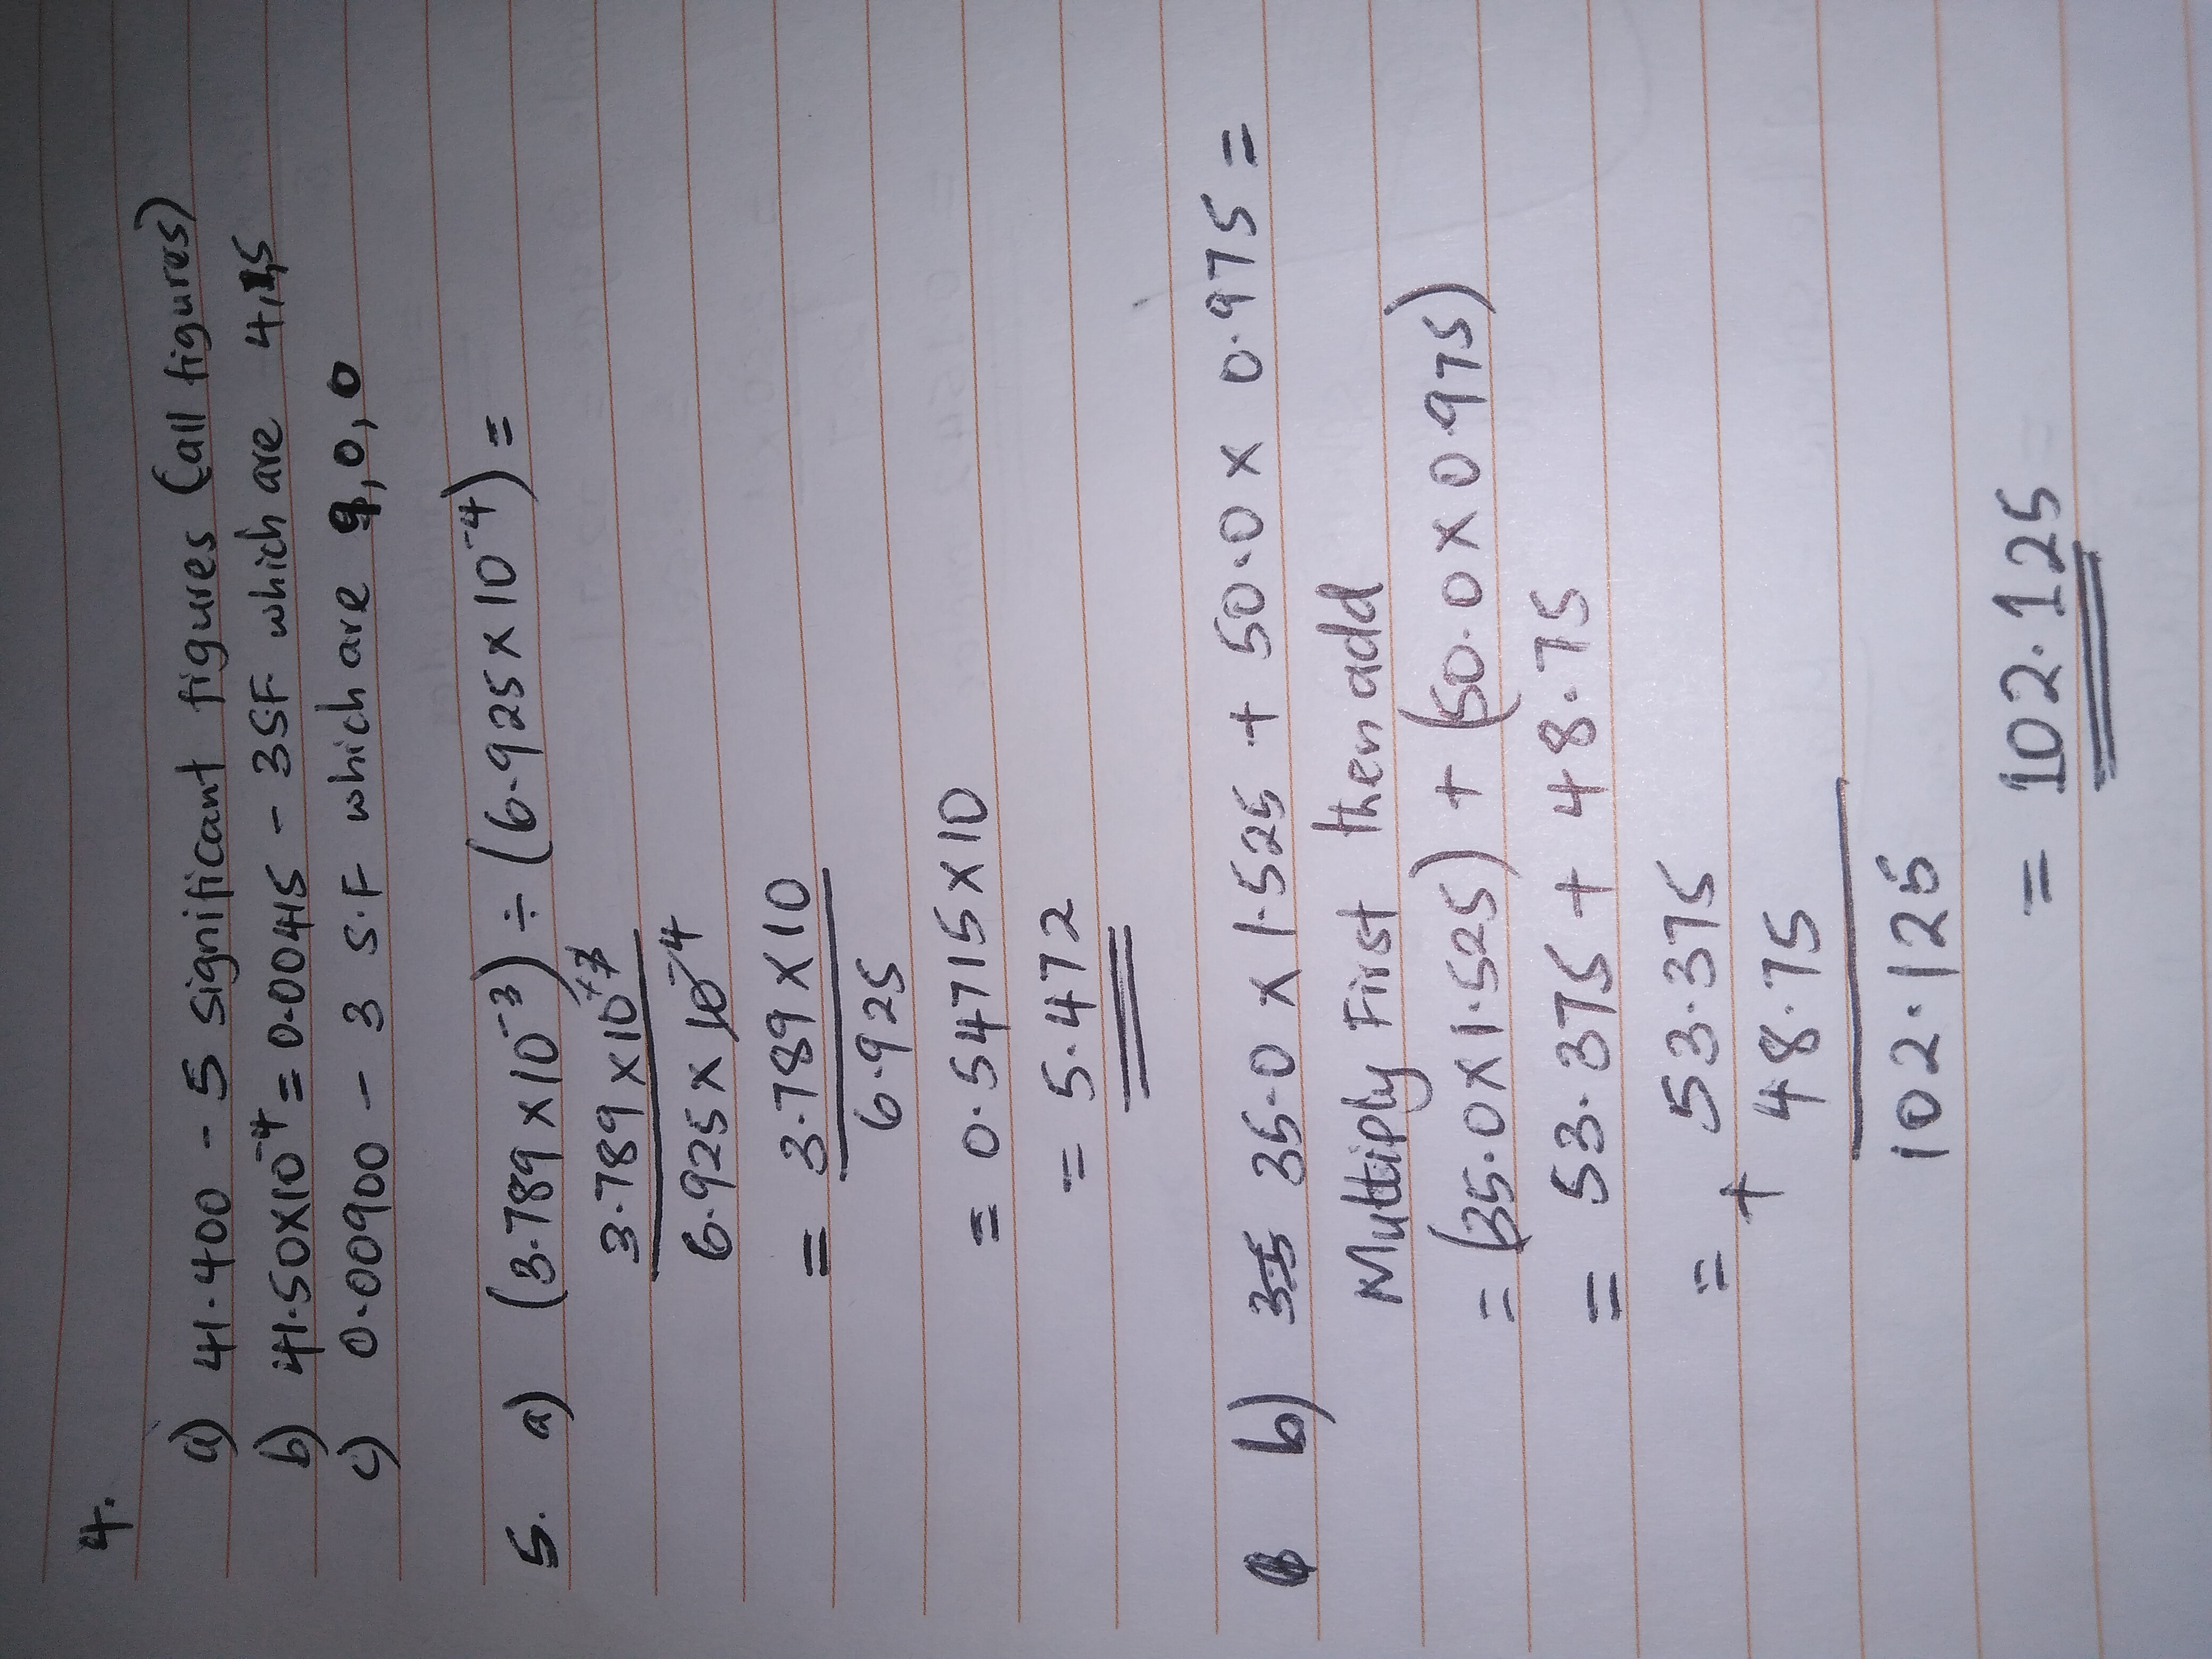 4.
a) 41.400 - 5 significant figures (all figures)
b) 41.50x10⁻⁴ = 0.00415 - 3SF which are 4,1,5
c) 0.00900 - 3 S.F which are 9,0,0
5. a) (3.789x10⁻³) ÷ (6.925x10⁻⁴) =
3.789x10
6.925 x 10⁻⁴
= 3.789x10
6.925
= 0.54715x10
= 5.472
b) 35 35.0 x 1.525 + 50.0 x 0.975 =
Multiply First then add
= (35.0x1.525) + (50.0x0.975)
= 53.375 + 48.75
= 53.375
+ 48.75
102.125
= 102.125